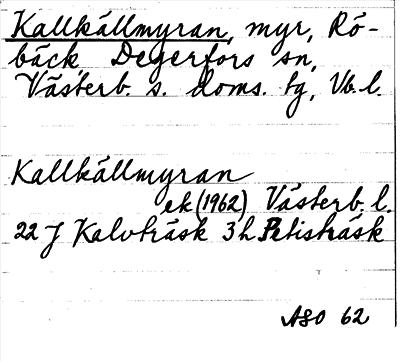 Kallkällmyran, myr, Rö-
bäck Degerfors sn,
Västerb. s. doms. tg, Vb. l.
Kallkällmyran
ek (1962) Västerb. l.
22 J Kalvträsk 3h Petisträsk
ASO 62